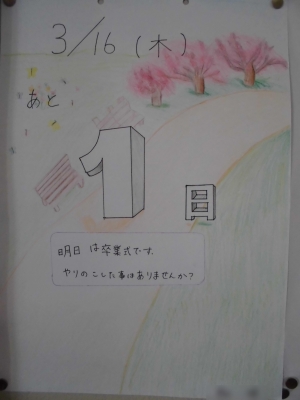 3/16(木)
あと
1日
明日は卒業式です.
やりのこした事はありませんか?